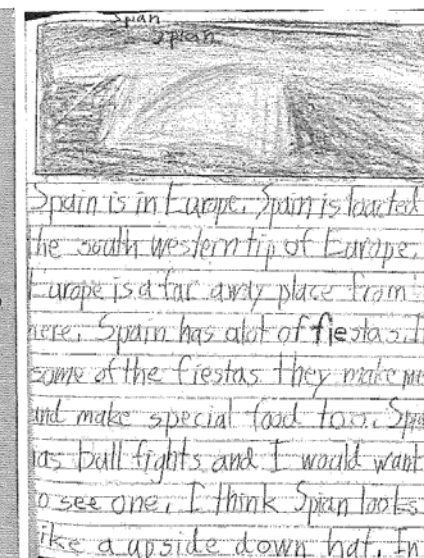 Spian
Spian
Spain is in Europe. Spain is loacted
the south western tip of Europe.
Europe is a far away place from
here. Spain has alot of fiestas. I
some of the fiestas they make
and make special food too.
has bull fights and I would want
to see one. I think Spian looks
like a upside down hat. In